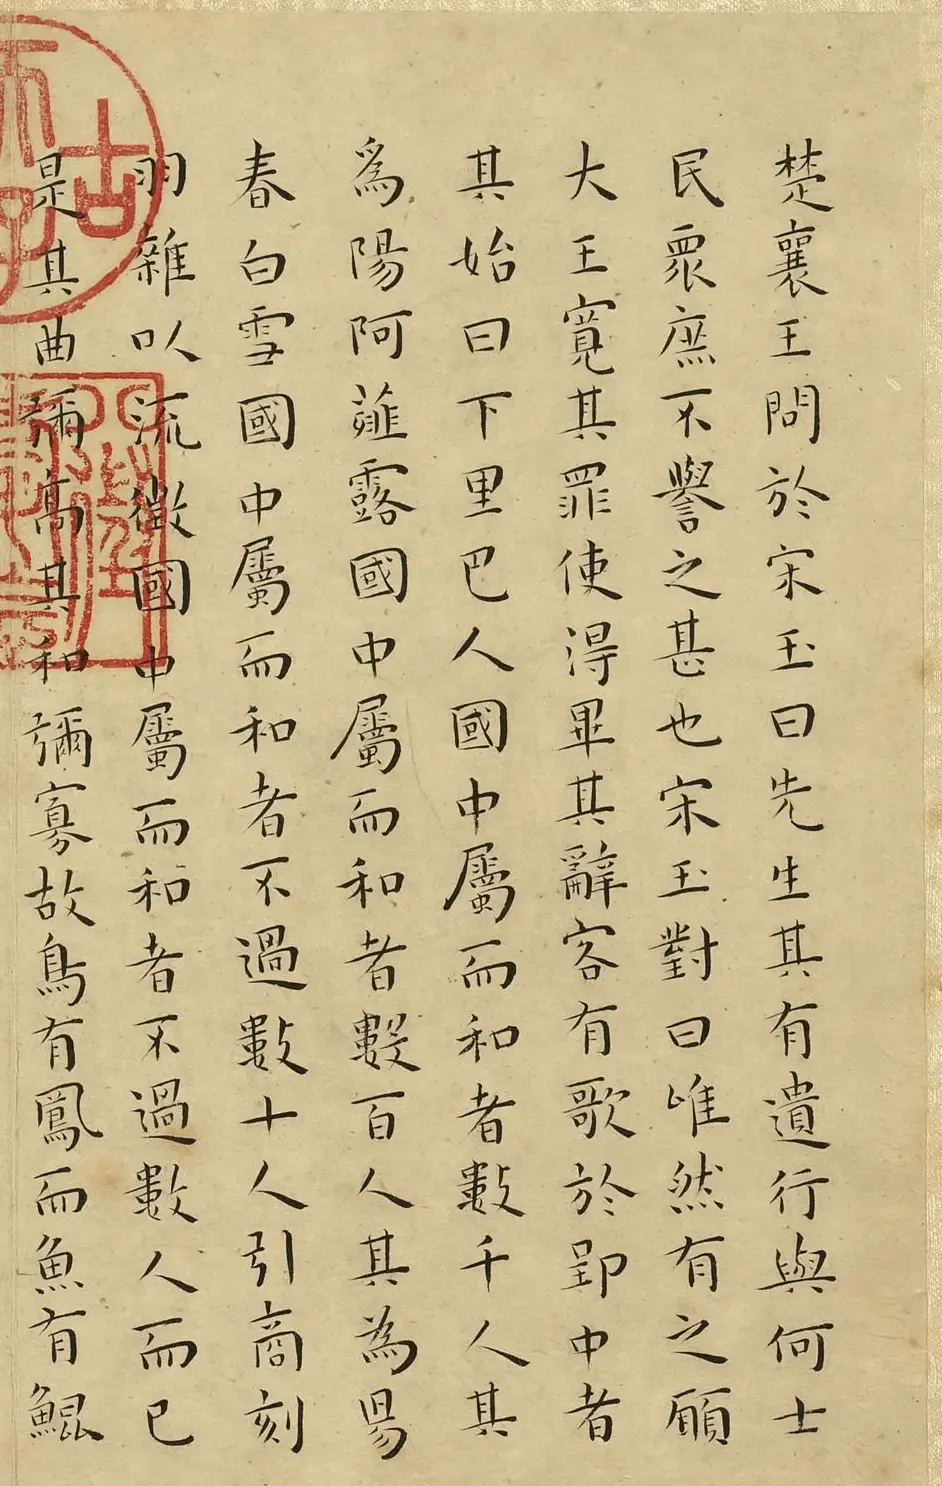 楚襄王問於宋玉曰先生其有遺行與何士
民眾庶不譽之甚也宋玉對曰唯然有之願
大王寬其罪使得畢其辭客有歌於郢中者
其始曰下里巴人國中屬而和者數千人其
為陽阿薤露國中屬而和者數百人其為陽
春白雪國中屬而和者不過數十人引商刻
羽雜以流徵國中屬而和者不過數人而已
是其曲彌高其和彌寡故鳥有鳳而魚有鯤